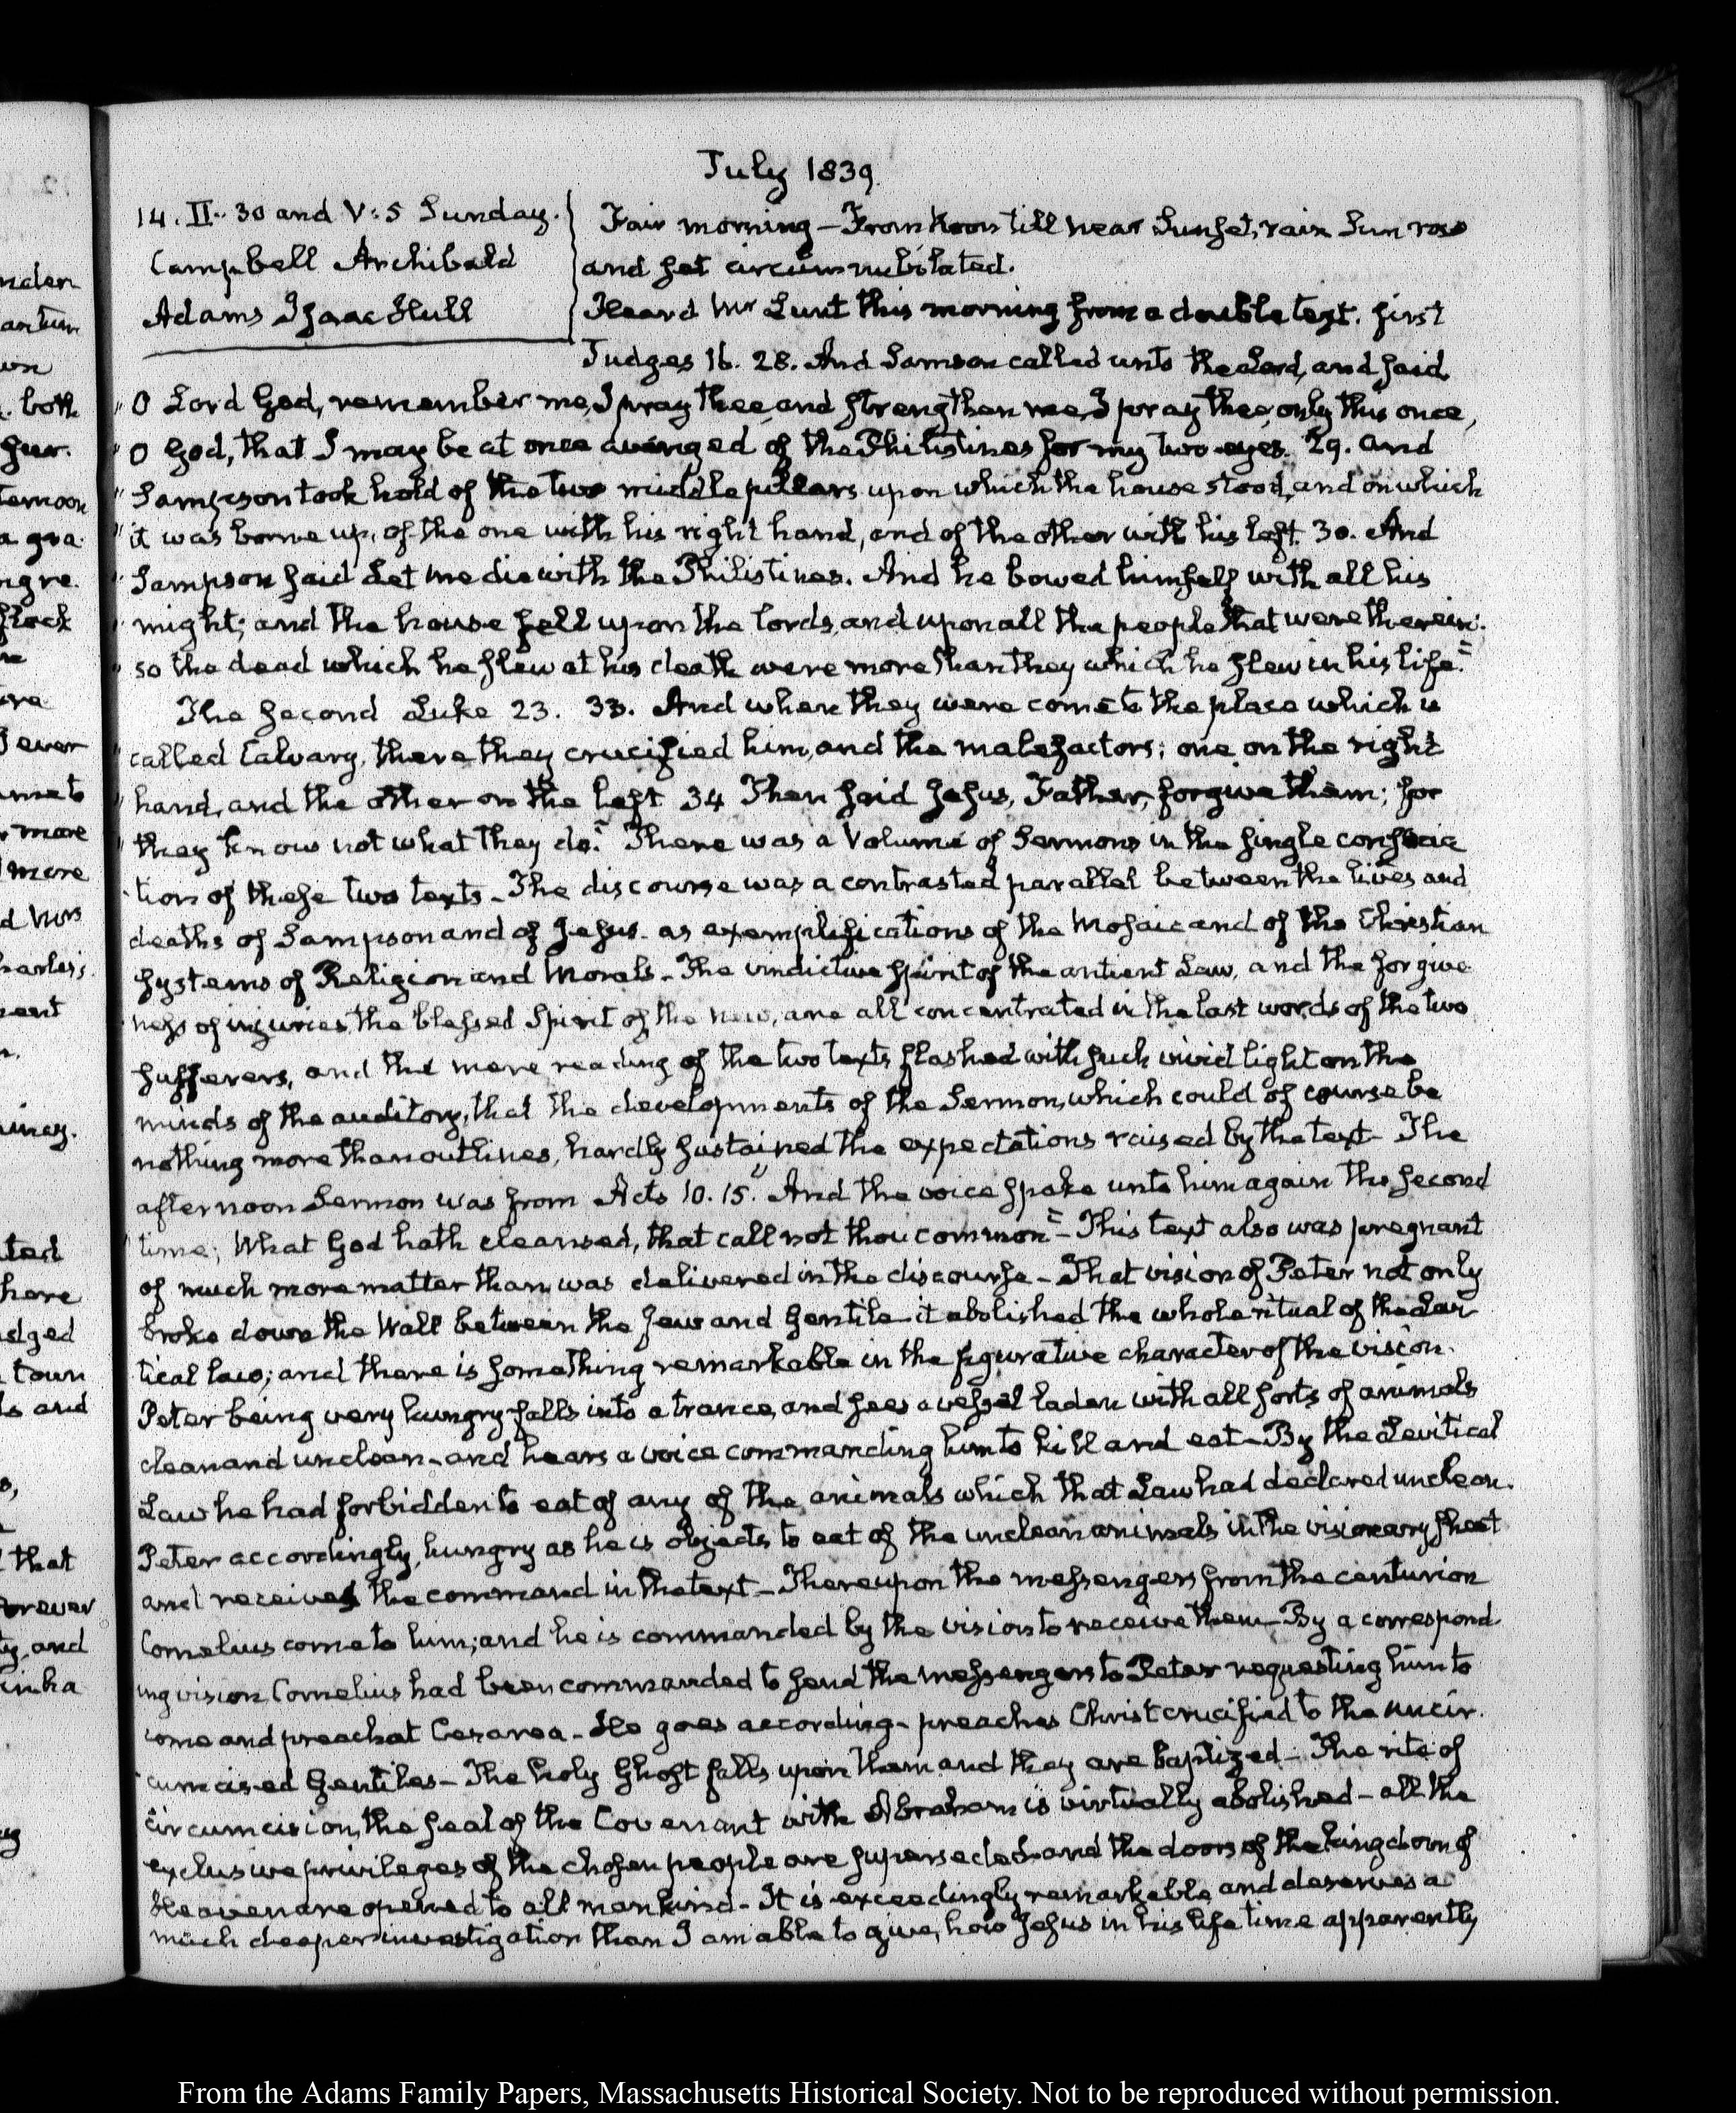 July 1839.
14. II. 30 and V: 5 Sunday.
Campbell Archibald
Adams Isaac Hull
Fair morning — From Noon till near Sunset, rain Sun rose
and set circumnubilated.
Heard Mr Lunt this morning from a double text. first
Judges 16. 28. And Samson called unto the Lord, and said
" O Lord God, remember me, I pray thee, and strengthen me, I pray thee, only this once,
" O God, that I may be at once avenged of the Philistines for my two eyes. 29. and
" Sampson took hold of the two middle pillars upon which the house stood, and on which
" it was borne up, of the one with his right hand, and of the other with his left. 30. And
" Sampson said Let me die with the Philistines. And he bowed himself with all his
" might; and the house fell upon the lords, and upon all the people that were therein:
" so the dead which he slew at his death were more than they which he slew in his life."
The second Luke 23. 33. And when they were come to the place which is
" called Calvary, there they crucified him, and the malefactors; one on the right
" hand, and the other on the left 34 Then said Jesus, Father, forgive them; for
" they know not what they do." There was a Volume of Sermons in the single
tion of these two texts – The discourse was a contrasted parallel between the lives and
deaths of Sampson and of Jesus. as exemplifications of the Mosaic and of the Christian
systems of Religion and Morals – The vindictive spirit of the antient Law, and the forgive
ness of injuries the blessed Spirit of the new, are all concentrated in the last words of the two
sufferers, and the mere reading of the two texts flashed with such vivid light on the
minds of the auditory, that the developments of the Sermon, which could of course be
nothing more than outlines, hardly sustained the expectations raised by the text – The
afternoon Sermon was from Acts 10. 15. "And the voice spake unto him again the second
" time; What God hath cleansed, that call not thou common" – This text also was pregnant
of much more matter than was delivered in the discourse – That vision of Peter not only
broke down the Wall between the Jew and Gentile – it abolished the whole ritual of the Levi
tical law; and there is something remarkable in the figurative character of the vision.
Peter being very hungry falls into a trance, and sees a vessel laden with all sorts of animals
clean and unclean – and hears a voice commanding him to kill and eat – By the Levitical
Law he had forbidden to eat of any of the animals which that Law had declared unclean.
Peter accordingly, hungry as he is objects to eat of the unclean animals in the visionary sheet
and receives the command in the text – Thereupon the messengers from the centurion
Cornelius come to him; and he is commanded by the vision to receive them – By a correspond
ing vision Cornelius had been commanded to send the messengers to Peter requesting him to
come and preach at Cesarea – He goes according – preaches Christ crucified to the uncir
cumcised Gentiles – The holy Ghost falls upon them and they are baptized – The rite of
circumcision, the seal of the Covenant with Abraham is virtually abolished – all the
exclusive privileges of the chosen people are superseded – and the doors of the kingdom of
Heaven are opened to all mankind – It is exceedingly remarkable, and deserves a
much deeper investigation than I am able to give, how Jesus in his life time apparently
From the Adams Family Papers, Massachusetts Historical Society. Not to be reproduced without permission.